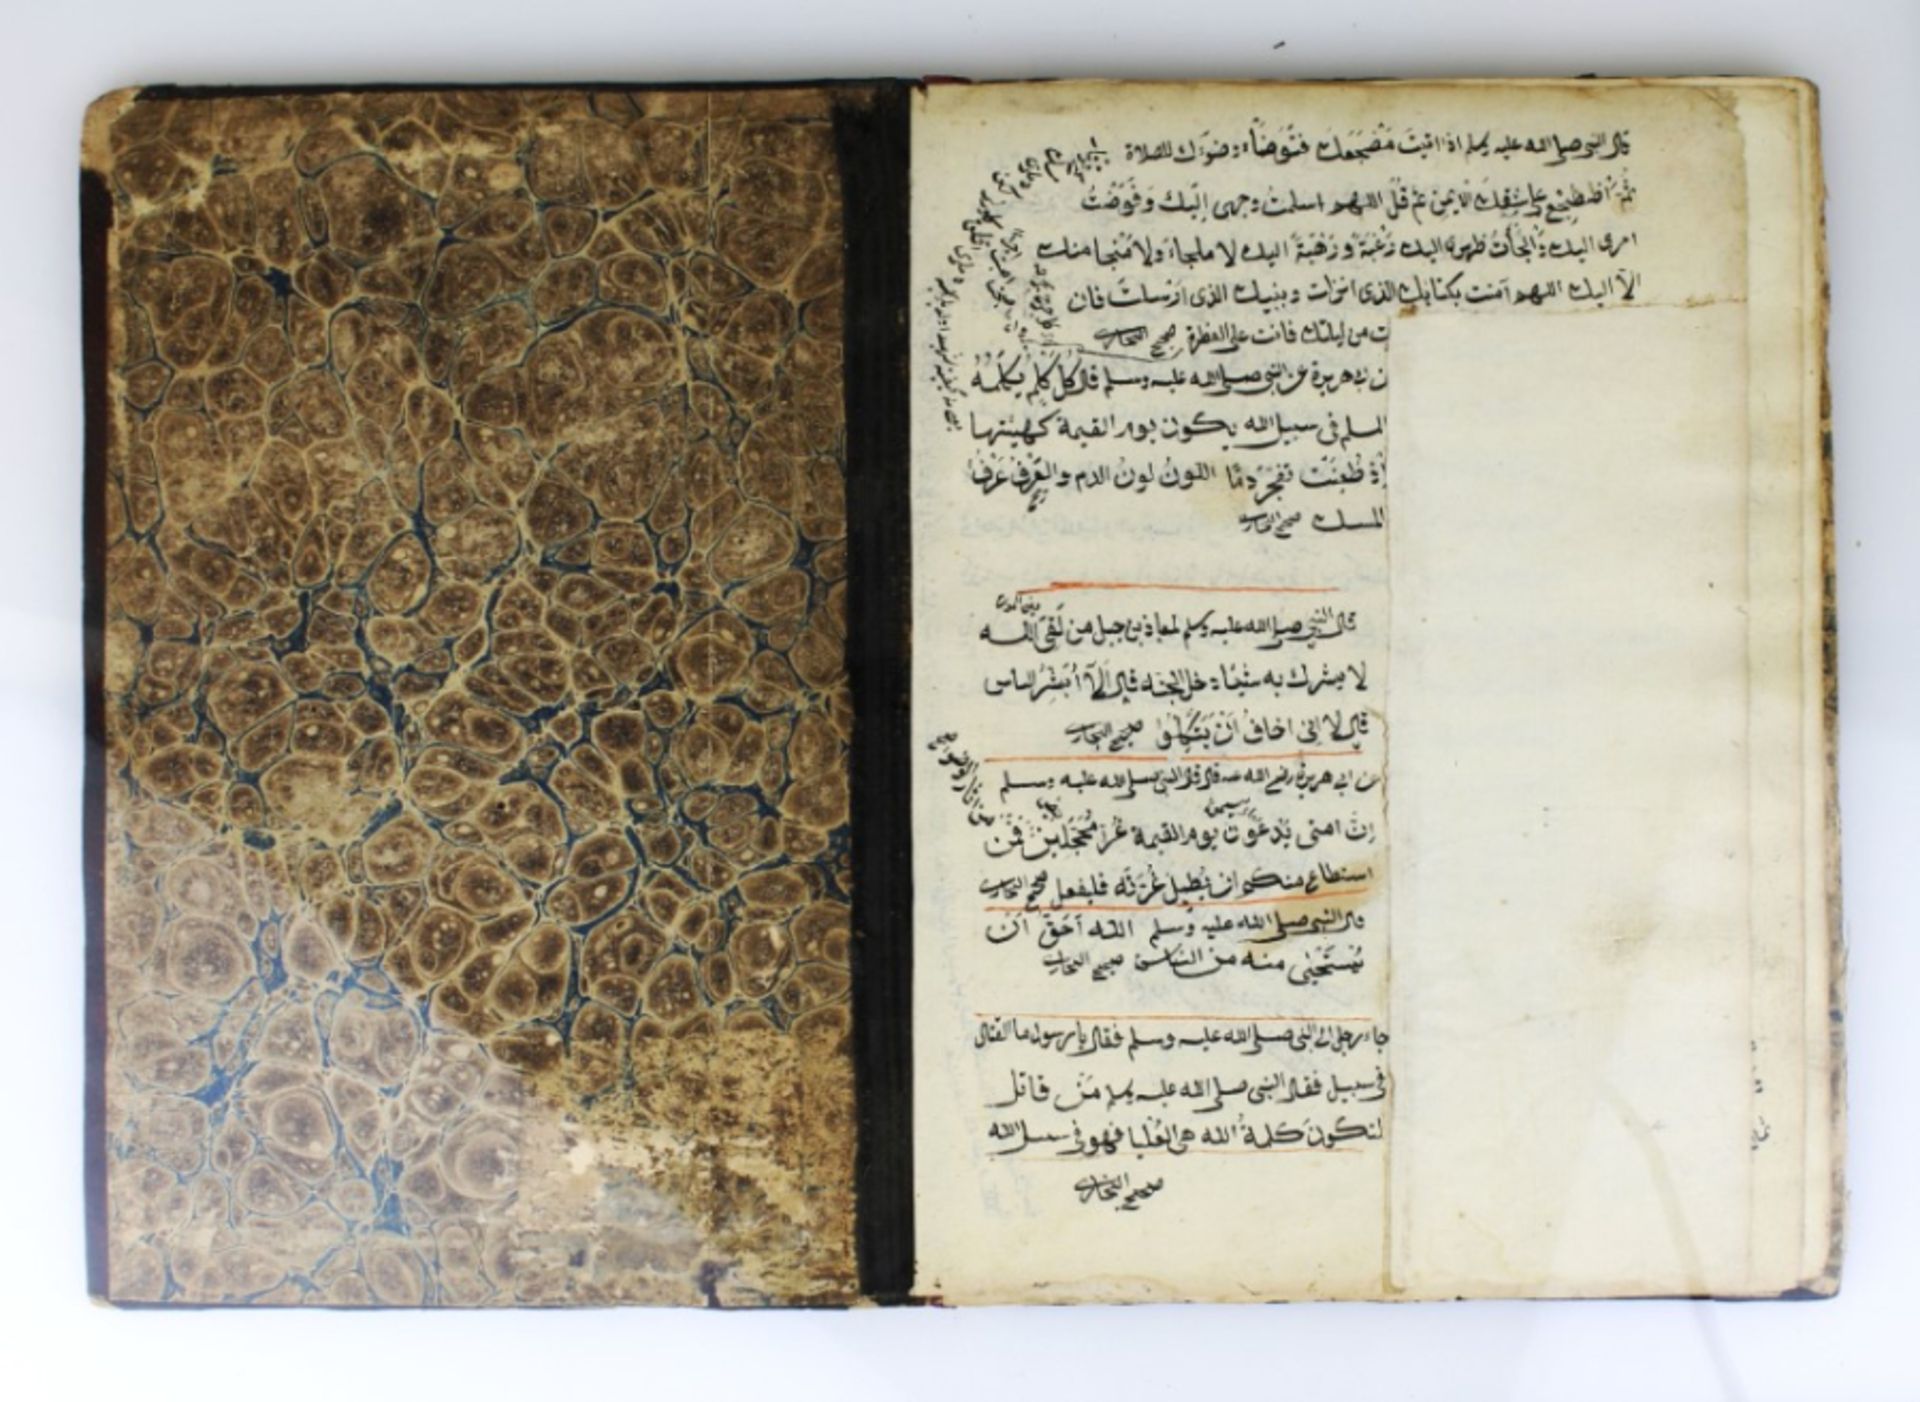 قال النبى صلى الله عليه وسلم اذا اتيت مَضْجَعَك فتَوَضّأ وضوءك للصلاة
ثمّ اضطجِع على شقِك الايمن ثم قُل اللهم اسلمت وجهى اليك وفَوّضْتُ
امرى اليك والجَأتُ ظهرى اليك رَغْبَةً ورَهْبَةً اليك لا ملجاء ولا مَنْجا منك
الا اليك اللهم آمنت بكتابك الذى انزلت ونبيك الذى ارسلت فان
ت من ليلتك فانت على الفطرة صحيح البخارى
ن ابى هريرة عن النبى صلى الله عليه وسلم قال كُل كَلْمٍ يُكْلَمُهُ
المسلم فى سبيل الله يكون يوم القيمة كهيئتها
اِذْ طُعِنَتْ تفجّرُ دمًا اللونُ لون الدم والعَرْفُ عَرْفُ
المسك صحيح البخارى
قال النبى صلى الله عليه وسلم لمعاذ بن جبل من لَقِىَ الله
لا يشرك به شيئا دخل الجنة قال اَلَا اُبَشِّرُ الناس
قال لا اِنى اخافُ اَنْ يَتّكِلُوا صحيح البخارى
عن ابى هريرة رضى الله عنه قال قال النبى صلى الله عليه وسلم
اِنّ امتى يُدْعَوْن يوم القيمة غُرًّا مُحَجَّلِين فَمَن
استطاع منكم ان يُطيل غُرّتَه فليفعل صحيح البخارى
قال النبى صلى الله عليه وسلم الله اَحَقّ اَنْ
يُسْتَحْيٰى منه من الناس صحيح البخارى
جاء رجل الى النبى صلى الله عليه وسلم فقال يا رسول ما القتال
فى سبيل فقال النبى صلى الله عليه وسلم مَنْ قاتل
لتكون كلمةُ الله هى العُلْيا فهو فى سبيل الله
صحيح البخارى